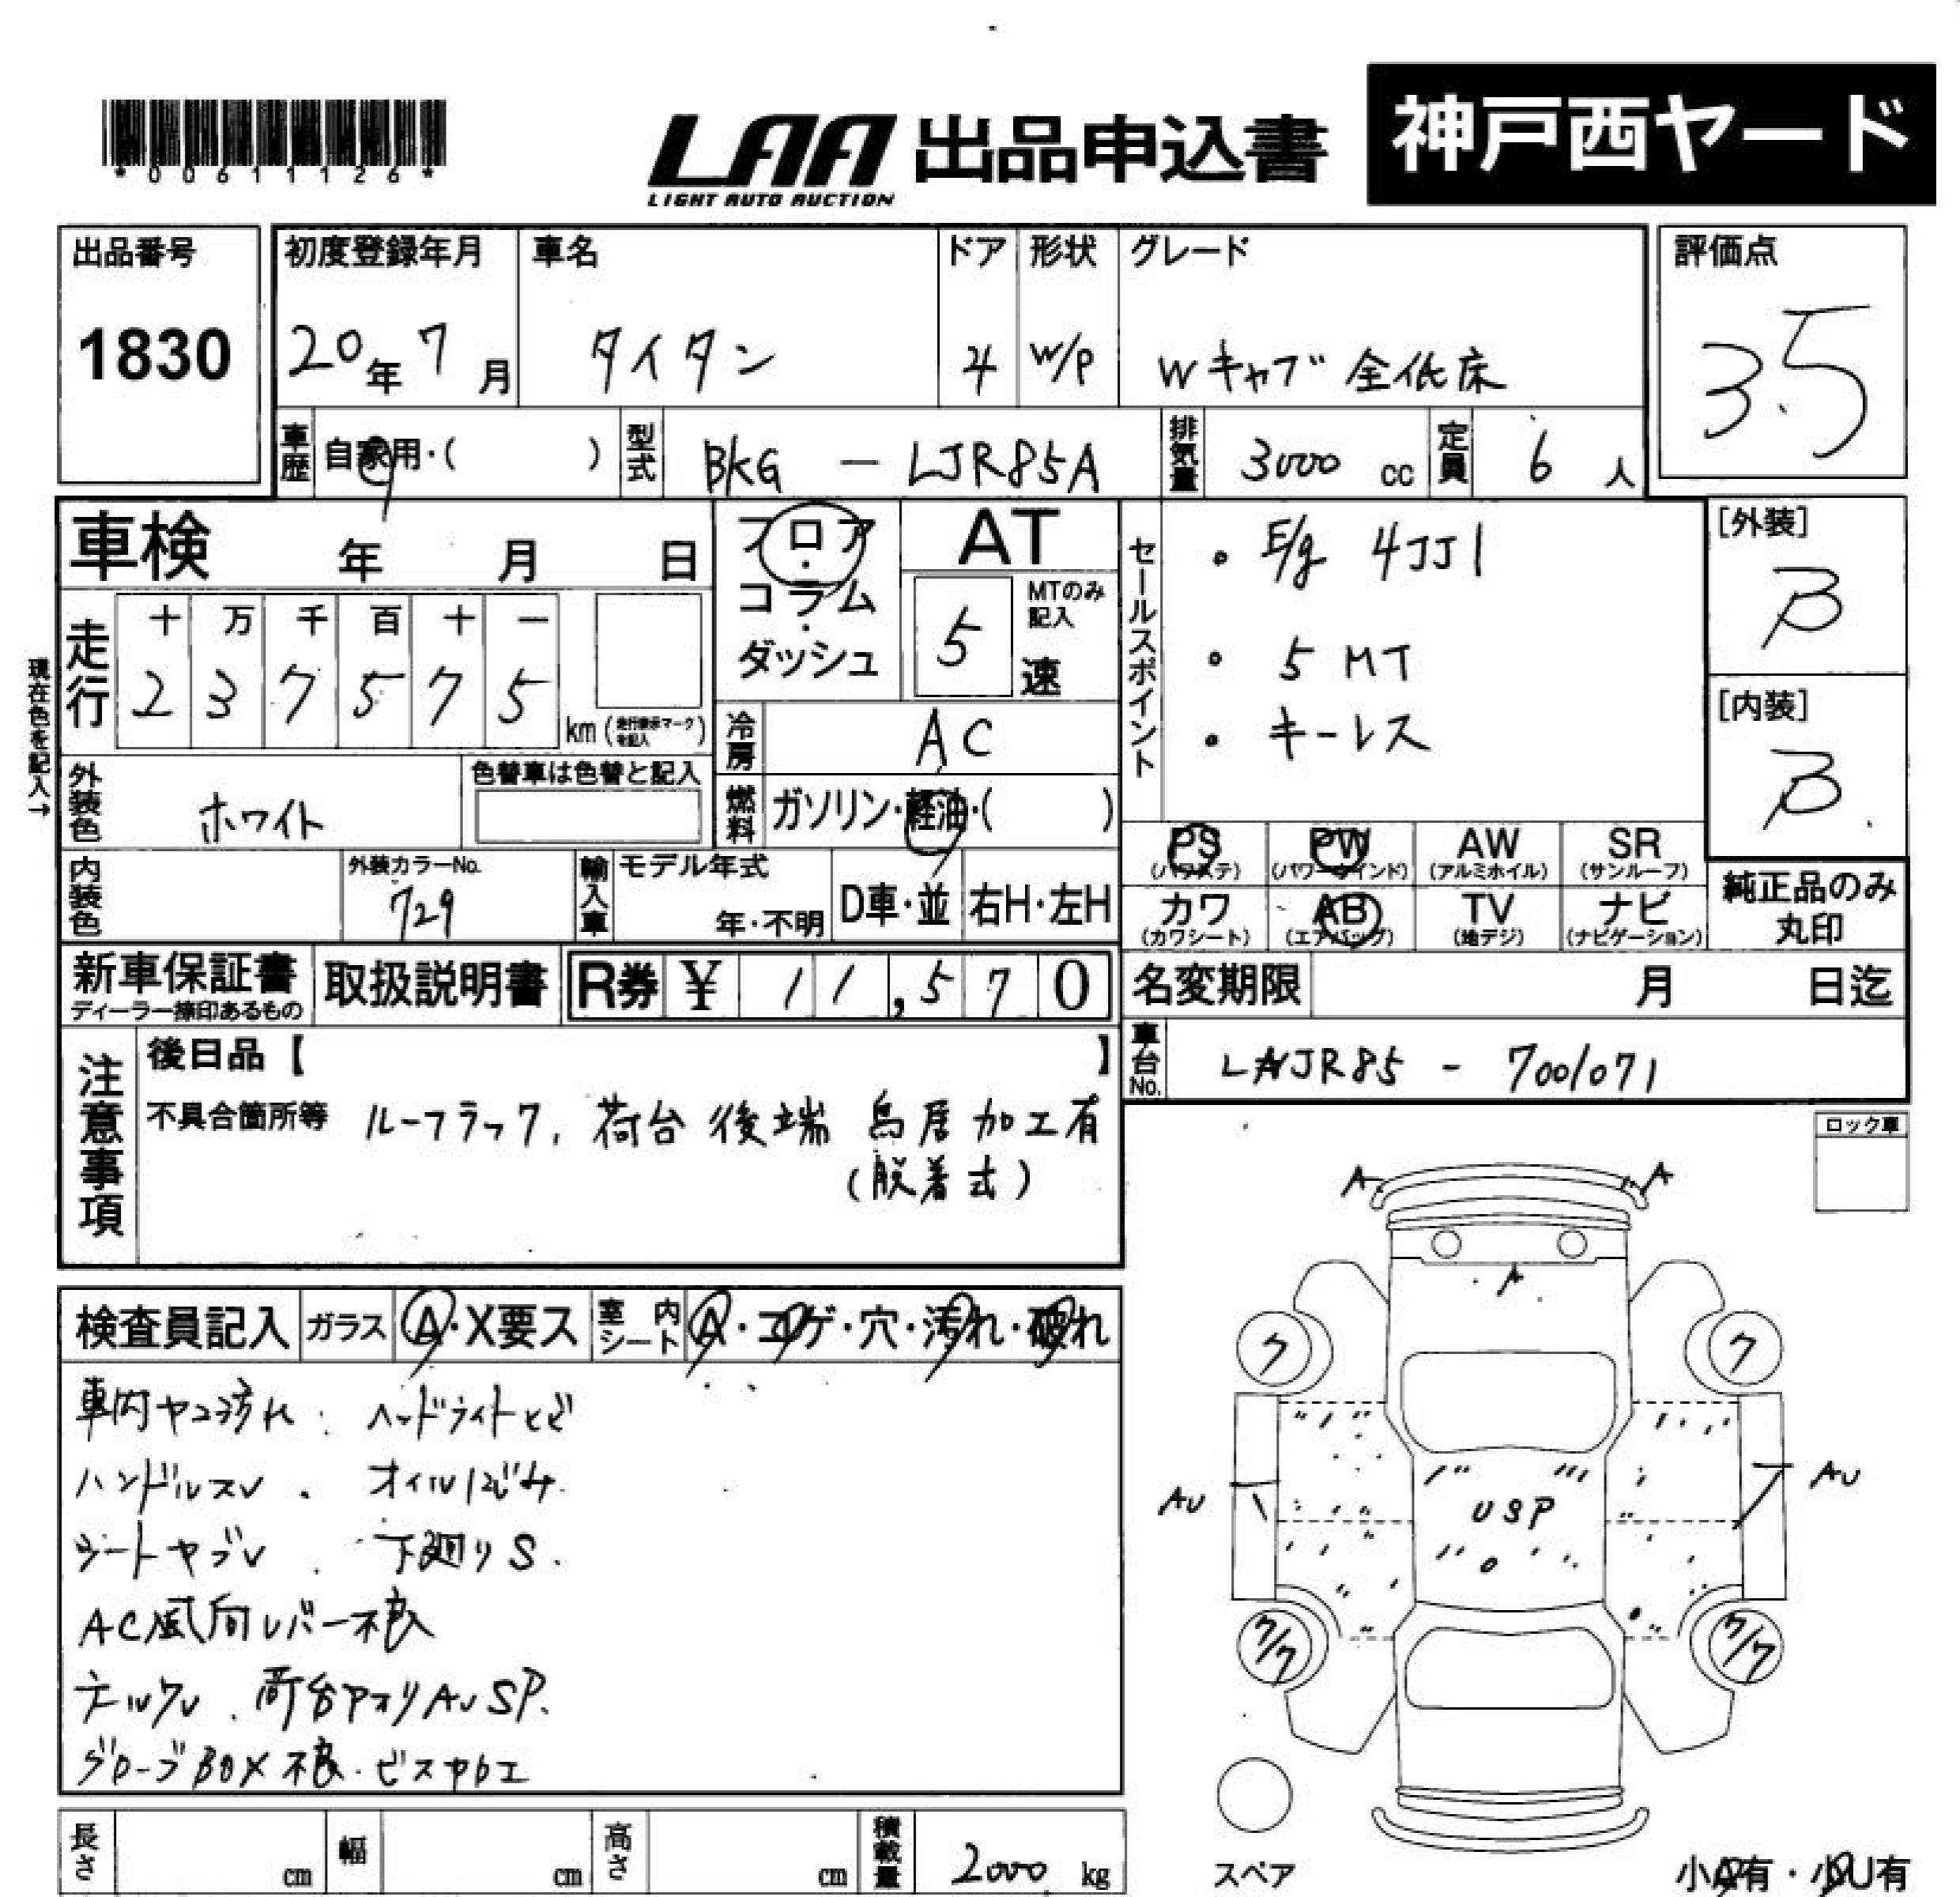 *00611126*
LAA 出品申込書
LIGHT AUTO AUCTION
神戸西ヤード
出品番号
1830
初度登録年月
20年 7月
車名
タイタン
ドア
4
形状
W/P
グレード
Wキャブ 全低床
評価点
3.5
車歴 自家用・( )
型式 BKG - LJR85A
排気量 3000 cc
定員 6 人
車検 年 月 日
フロア・コラム・ダッシュ
AT
5 速
MTのみ記入
セールスポイント
・E/g 4JJ1
・5MT
・キーレス
[外装]
B
[内装]
B
現在色を記入→
走行
十 万 千 百 十 一
2 3 7 5 7 5
km (走行表示マークを記入)
冷房 AC
燃料 ガソリン・軽油・( )
外装色 ホワイト
色替車は色替と記入
内装色
外装カラーNo.
729
輸入車
モデル年式
年・不明
D車・並
右H・左H
PS (パワステ)
PW (パワーウインド)
AW (アルミホイル)
SR (サンルーフ)
カワ (カワシート)
AB (エアバッグ)
TV (地デジ)
ナビ (ナビゲーション)
純正品のみ
丸印
新車保証書
ディーラー捺印あるもの
取扱説明書
R券 ¥ 11,570
名変期限 月 日迄
車台No. LNJR85 - 7001071
注意事項
後日品【 】
不具合箇所等 ルーフラック, 荷台後端 鳥居加工有
(脱着式)
ロック車
検査員記入
ガラス A・X要ス
室内シート A・コゲ・穴・汚れ・破れ
車内ヤニ汚れ. ヘッドライトヒビ
ハンドルスレ. オイルにじみ.
シートヤブレ. 下廻りS.
AC風向レバー不良
荷台アオリAUSP.
グローブBOX不良・ビス加工
A
A
A
ク
ク
AU
AU
USP
ク/ク
ク/ク
スペア
小A有・小U有
長さ cm
幅 cm
高さ cm
積載量 2000 kg